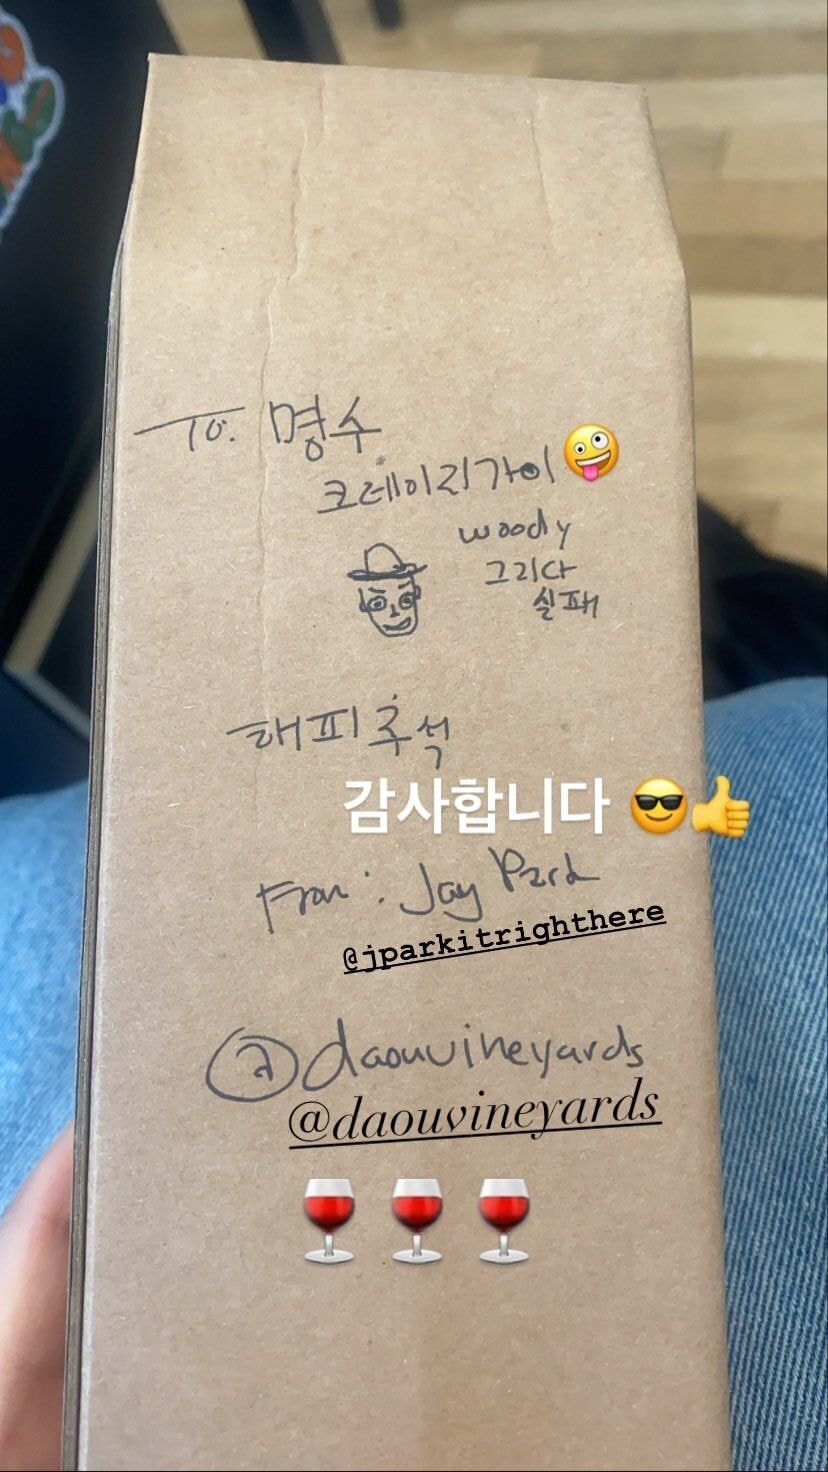 To. 명수
크레이지가이🤪
woody
그리다
실패
해피추석
감사합니다 😎👍
From: Jay Park
@jparkitrighthere
@daouvineyards
@daouvineyards
🍷 🍷 🍷